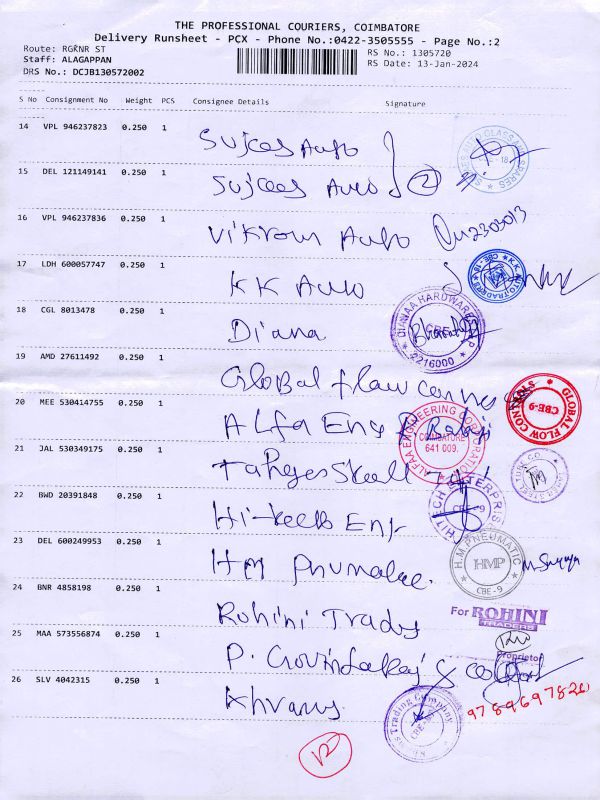 THE PROFESSIONAL COURIERS, COIMBATORE
Delivery Runsheet - PCX - Phone No.:0422-3505555 - Page No.:2
Route: RGRNR ST
RS No.: 1305720
Staff: ALAGAPPAN
RS Date: 13-Jan-2024
DRS No.: DCJB130572002
S No Consignment No Weight PCS Consignee Details Signature
14 VPL 946237823 0.250 1
Sujees Auto
15 DEL 121149141 0.250 1
Sujees Auto 2
16 VPL 946237836 0.250 1
Vikrom Auto
17 LDH 600057747 0.250 1
KK Auto
18 CGL 8013478 0.250 1
Diana
DIANAA HARDWARE
CBE
2216000
19 AMD 27611492 0.250 1
Global flow
GLOBAL FLOW CONTROLS
CBE-9
20 MEE 530414755 0.250 1
Alfa Eng Balaji
ALFAA ENGINEERING CORPORATION
COIMBATORE
641 009.
21 JAL 530349175 0.250 1
22 BWD 20391848 0.250 1
Hi-teeb Eng
HITECH ENTERPRIS
CBE-9
23 DEL 600249953 0.250 1
HM
H.M.PNEUMATIC
HMP
CBE-9
24 BNR 4858198 0.250 1
Rohini Trades
For ROHINI
TRADERS
Proprietor
25 MAA 573556874 0.250 1
P. Govindaraj &
26 SLV 4042315 0.250 1
Khrams
Trading Company
CBE
12